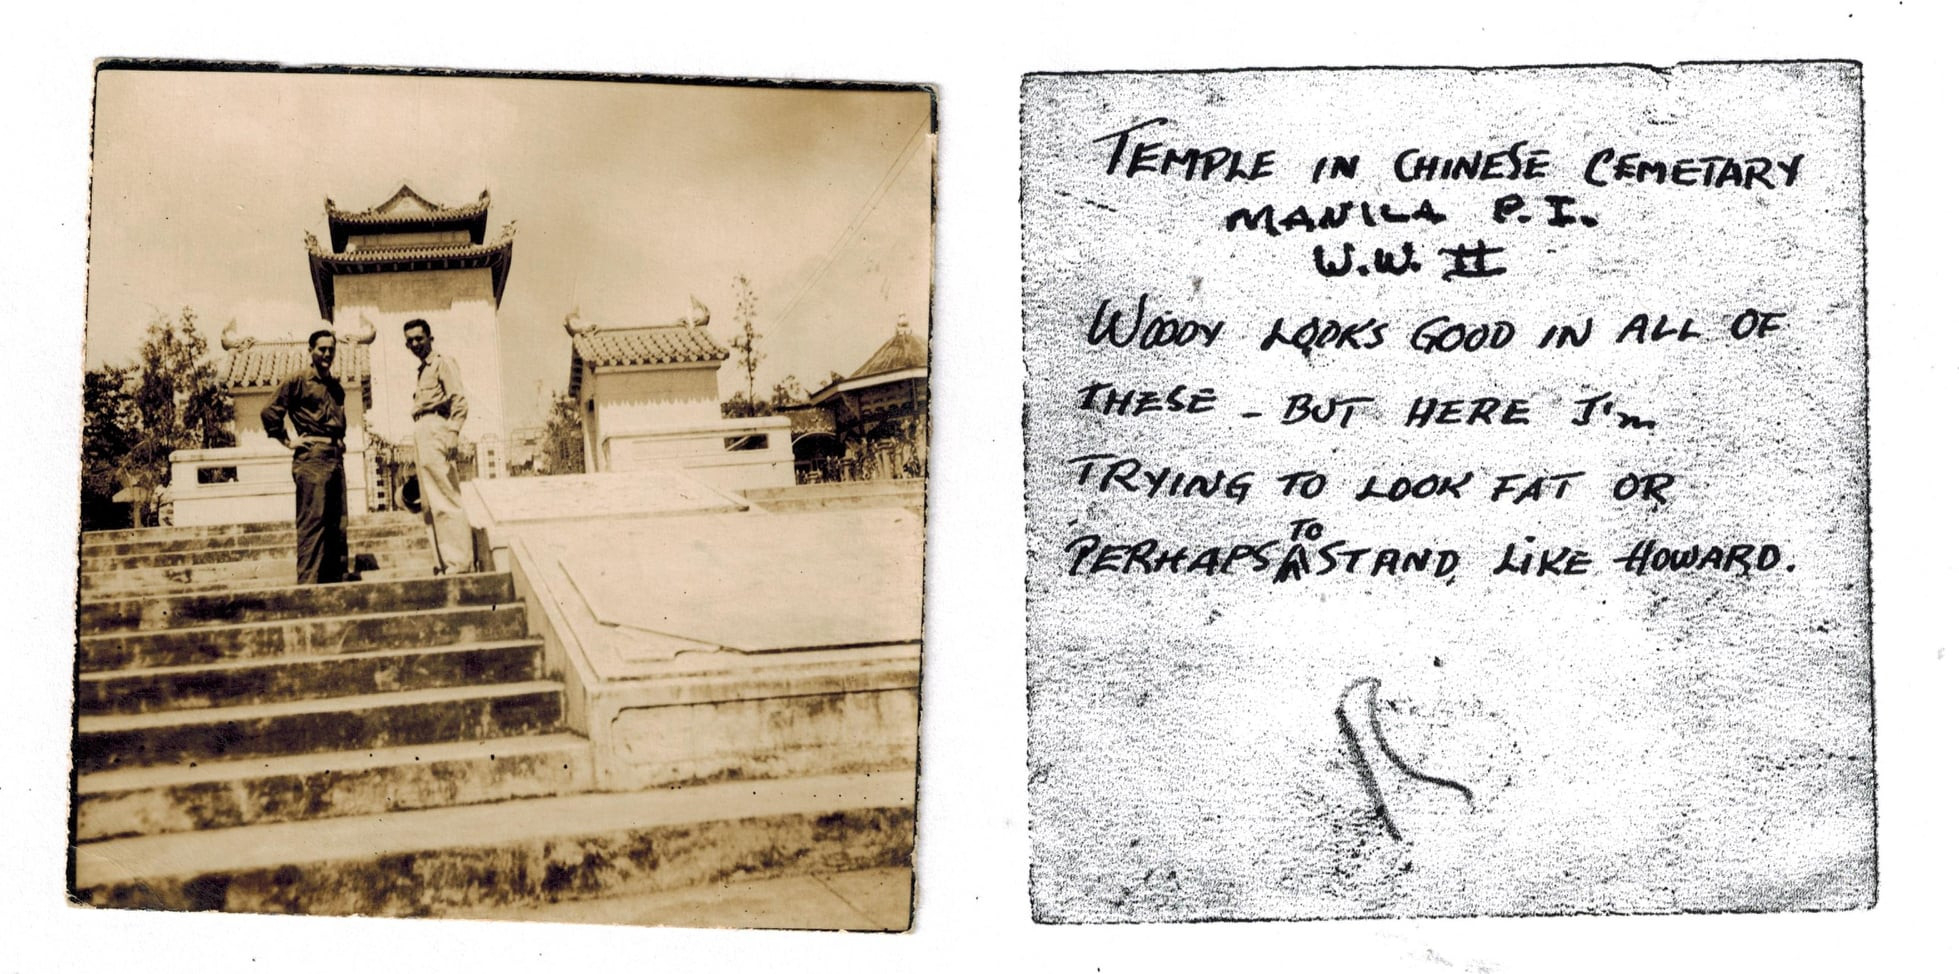 TEMPLE IN CHINESE CEMETARY
MANILA P.I.
W.W. II
WOODY LOOKS GOOD IN ALL OF
THESE - BUT HERE I'm
TRYING TO LOOK FAT OR
PERHAPS TO STAND LIKE HOWARD.